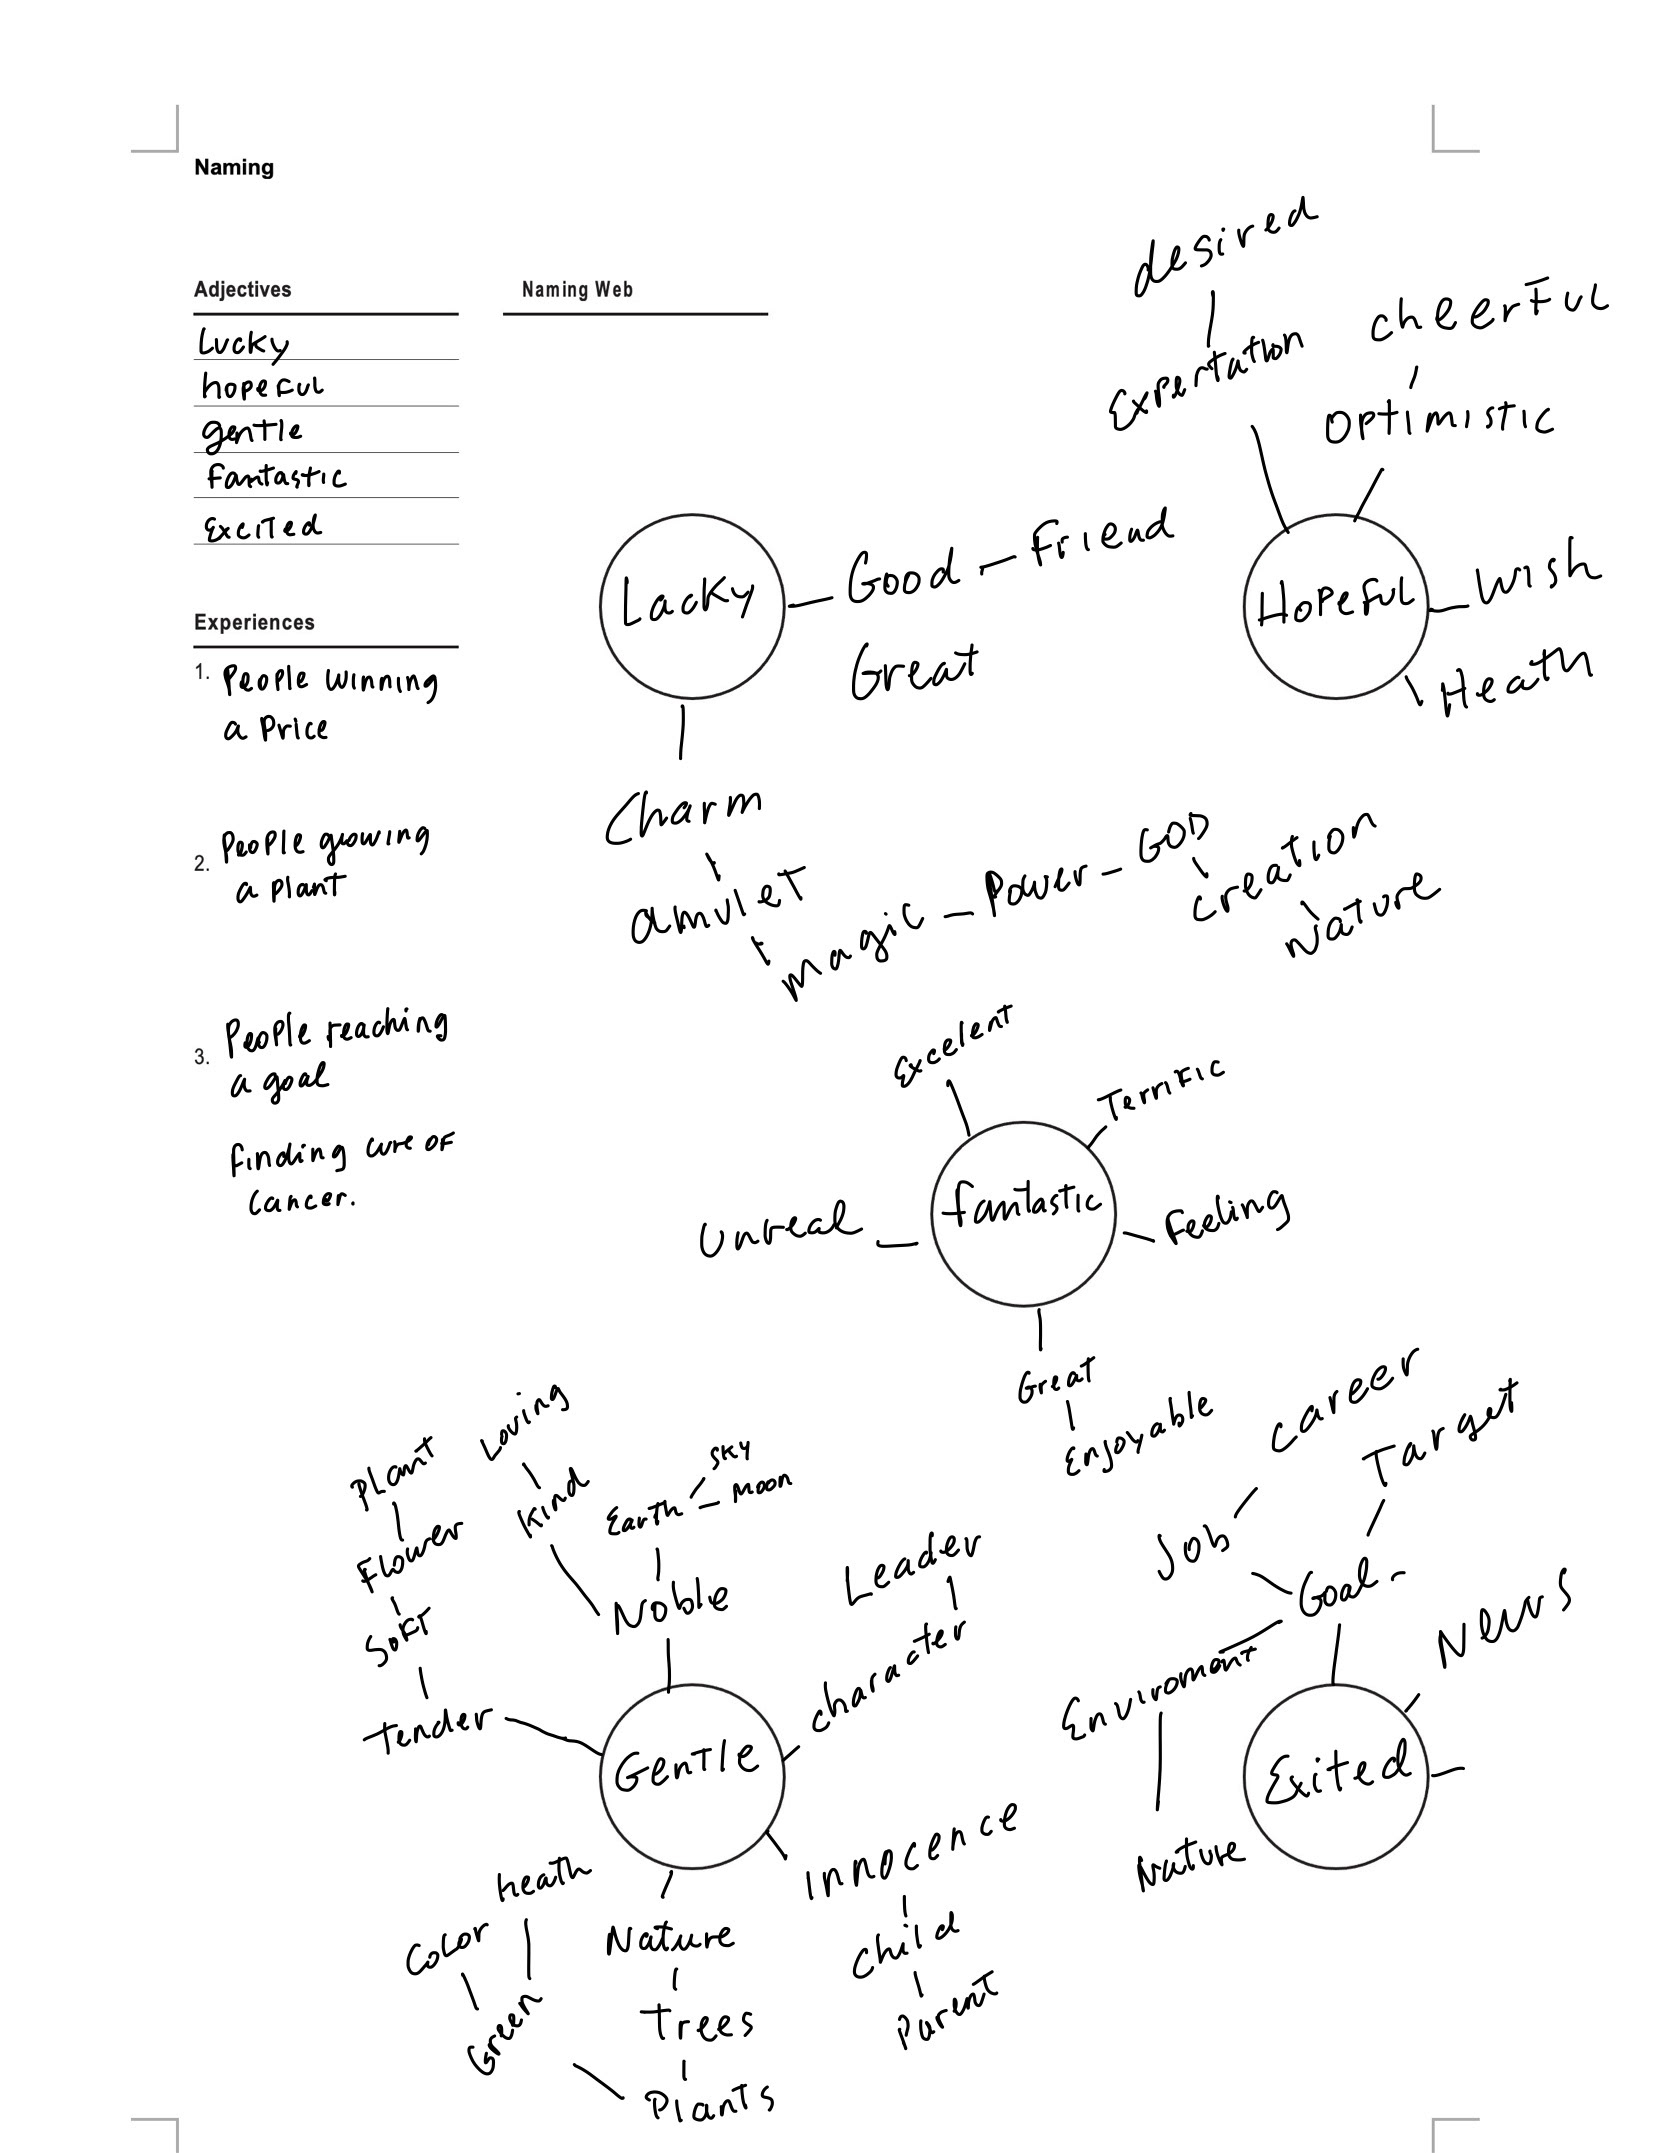 Naming
Adjectives
Lucky
hopeful
gentle
fantastic
Excited
Experiences
1. People winning
a Price
2. People growing
a plant
3. People reaching
a goal
finding cure of
cancer.
Naming Web
Lacky
Good
Friend
Great
Charm
amulet
magic
Power
GOD
creation
Nature
Hopeful
desired
Expertation
cheerful
optimistic
Wish
Heath
fantastic
Excelent
Terrific
Feeling
Unreal
Great
Enjoyable
Gentle
Plant
Flower
Soft
Tender
Loving
Kind
Sky
Earth
Moon
Noble
Leader
character
Innocence
child
Parent
Nature
Trees
Plants
heath
Color
Green
Exited
Career
Target
Job
Goal
News
Enviroment
Nature